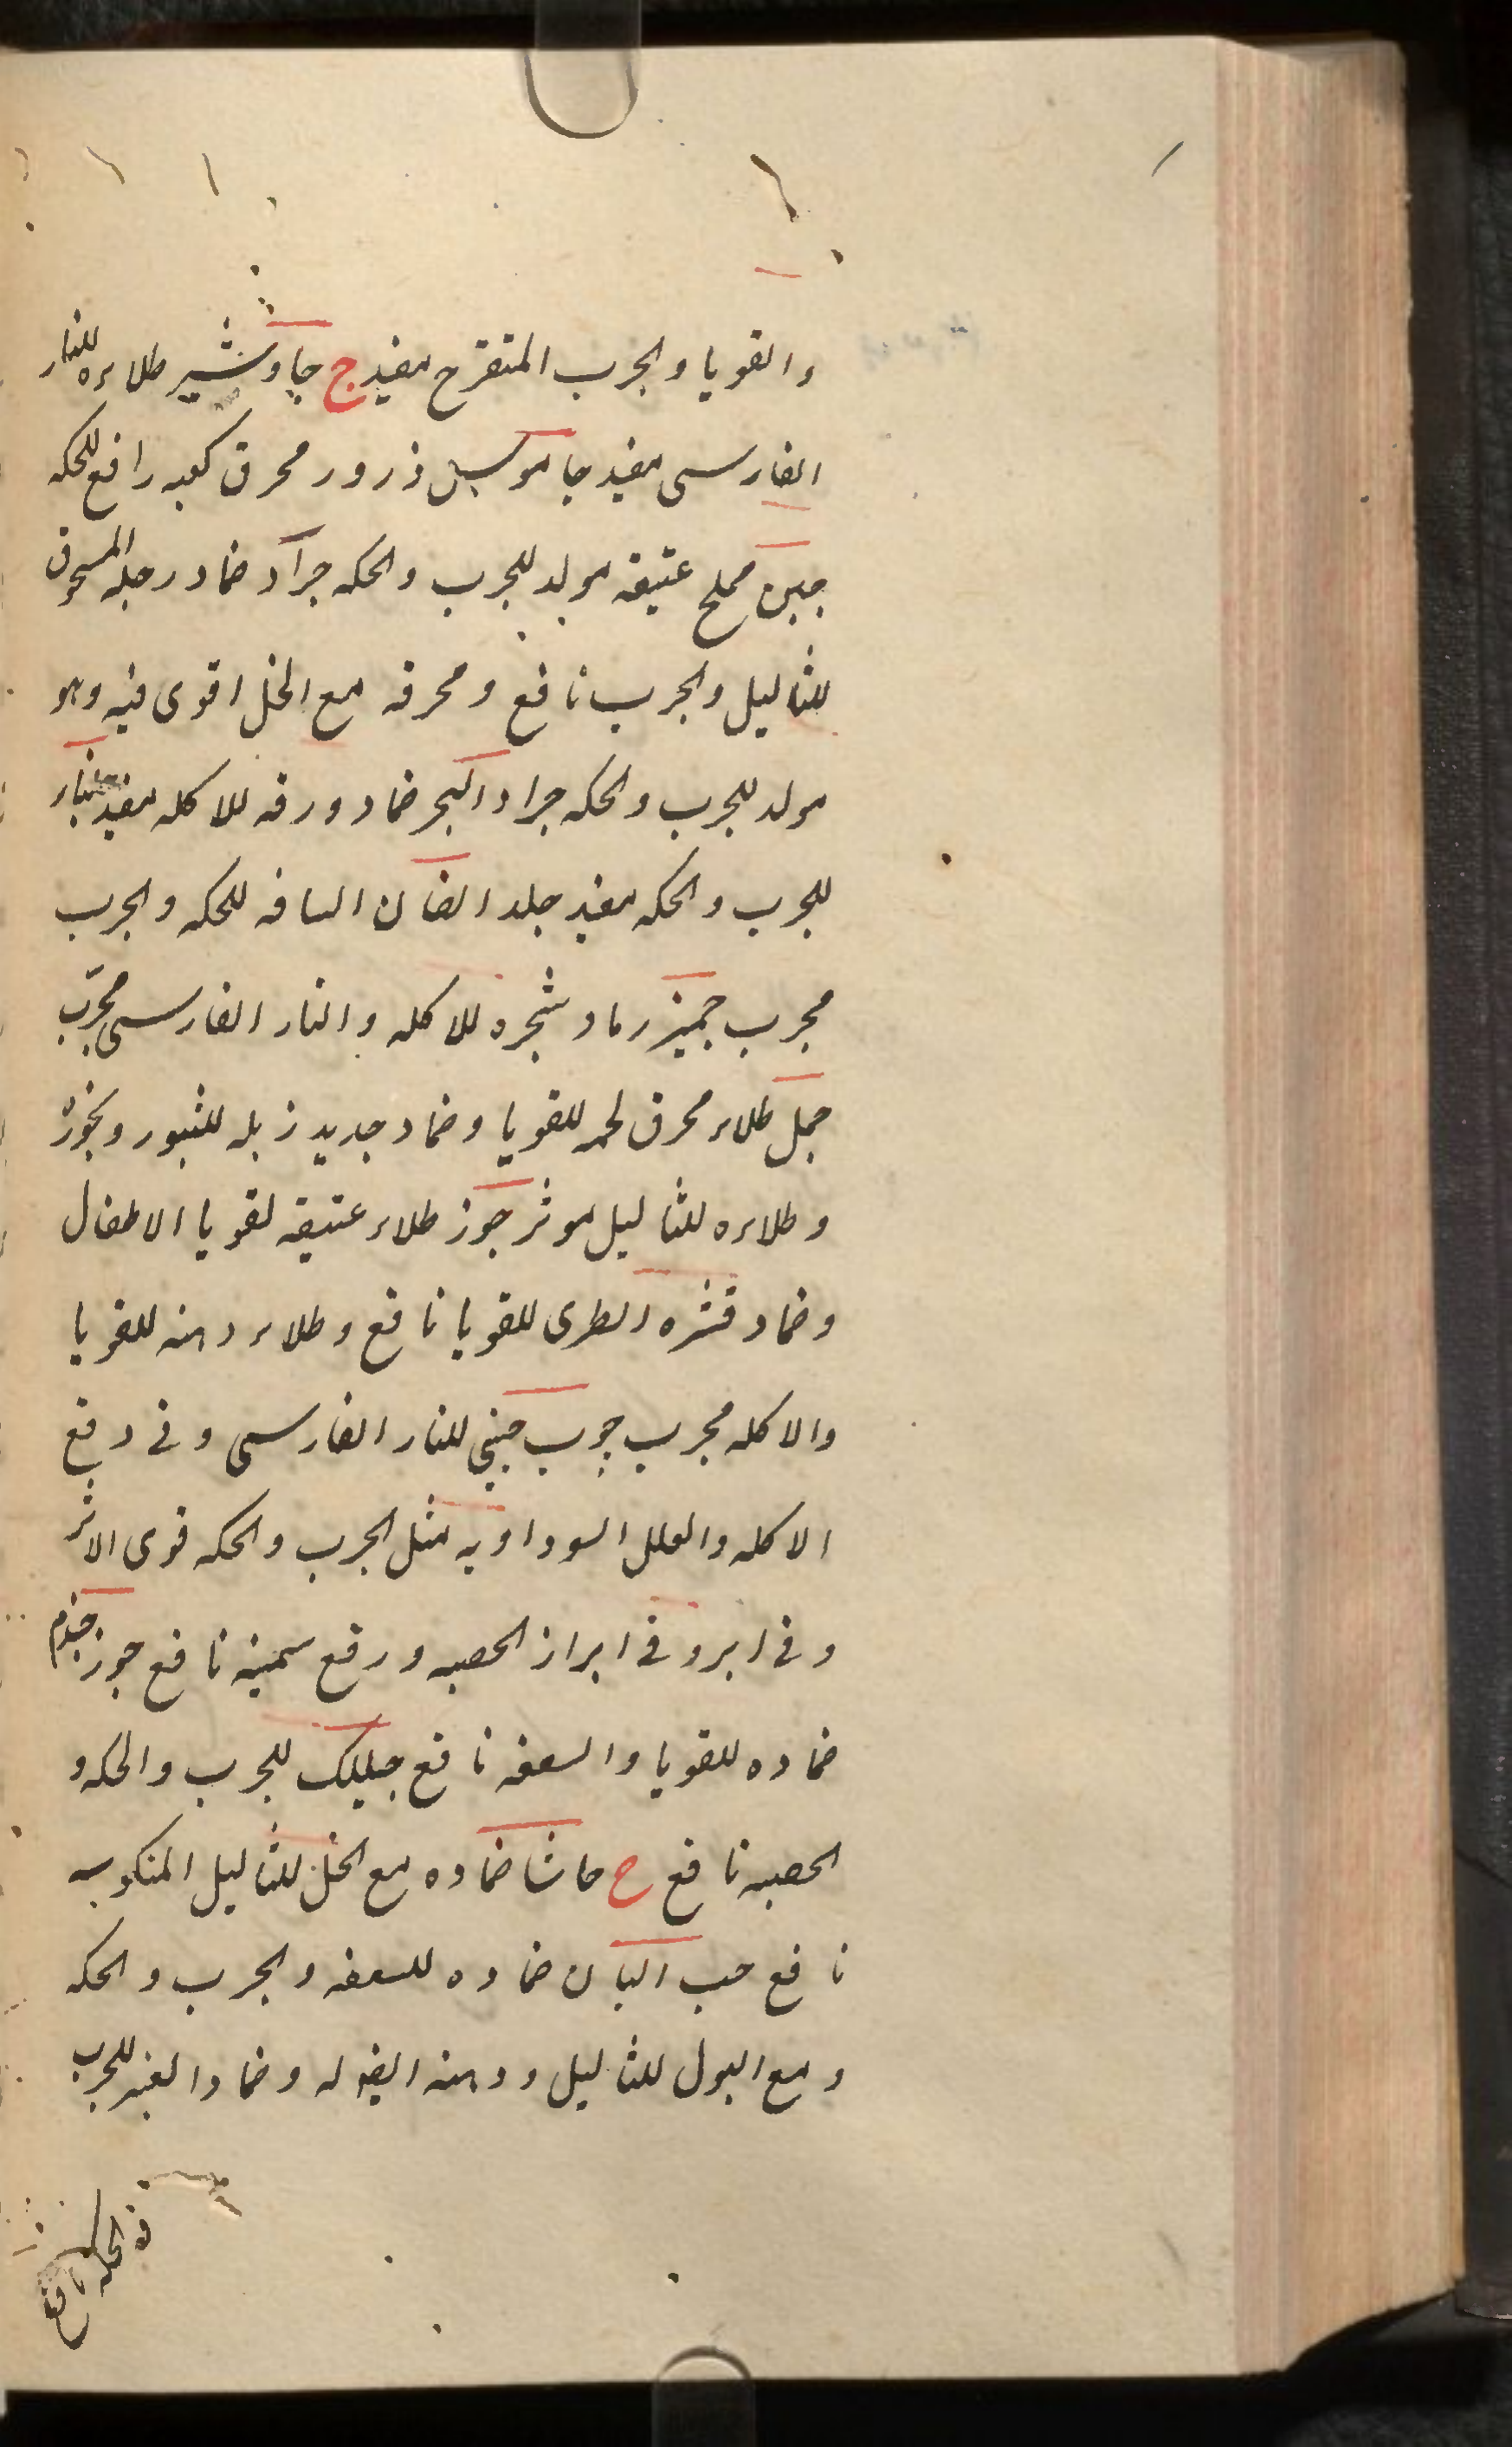 والقوبا والجرب المتقرح مفيد ج جاوشير طلاءه للنار
الفارسى مفيد جاموسیل ذرور محرق كعبه رافع للحكه
جبن مملح عتيقه مولد للجرب والحكه جراد ضماد رجله المسحوق
للثاليل والجرب نافع ومحرقه مع الخل اقوى فيه وهو
مولد للجرب والحكه جراد البحر ضماد ورقه للاكله مفيد
للجرب والحكه مفيد جلد الضان الساقه للحكه والجرب
مجرب جميز رماد شجره للاكله والنار الفارسى مجرّب
جمل طلاء محرق لحمه للقوبا وضماد جديد زبله للثبور وبخوره
وطلاءه للثاليل موثر جوز طلاء عتيقه لقوبا الاطفال
وضماد قشره الطرى للقوبا نافع وطلاء دهنه للقوبا
والاكله مجرب جوب جينى للنار الفارسى وفى دفع
الاكله والعلل السوداويه مثل الجرب والحكه قوى الاثر
وفى ابرو فى ابراز الحصبه ورفع سميته نافع جوز جندم
ضماده للقوبا والسعفه نافع جبلبك للجرب والحكه و
الحصبه نافع ح حاشا ضماده مع الخل للثاليل المنكوسه
نافع حب البان ضماده للسعفه والجرب والحكه
ومع البول للثاليل ودهنه ايضا له وضماد الغير للجرب
والحكه نافع